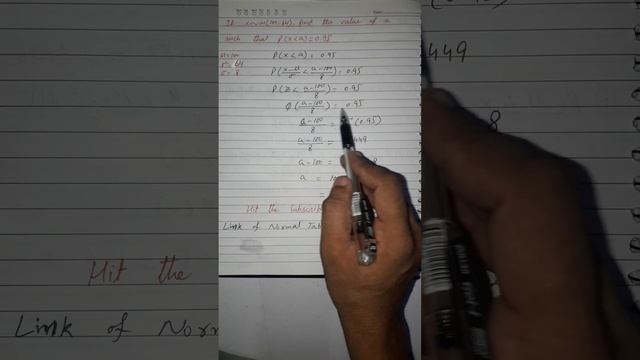 If x~N(100, 64), find the value of a
such that P(x<a)=0.95
μ=100
σ²=64
σ = 8
P(x<a) = 0.95
P(x-μ/σ < a-100/8) = 0.95
P(z < a-100/8) = 0.95
Φ(a-100/8) = 0.95
a-100/8 = (0.95)
a-100/8 = 449
a-100 = 8
a = 10
=
Hit the Subscrib
Link of Normal Tab
449
8
Hit the
Link of Norm